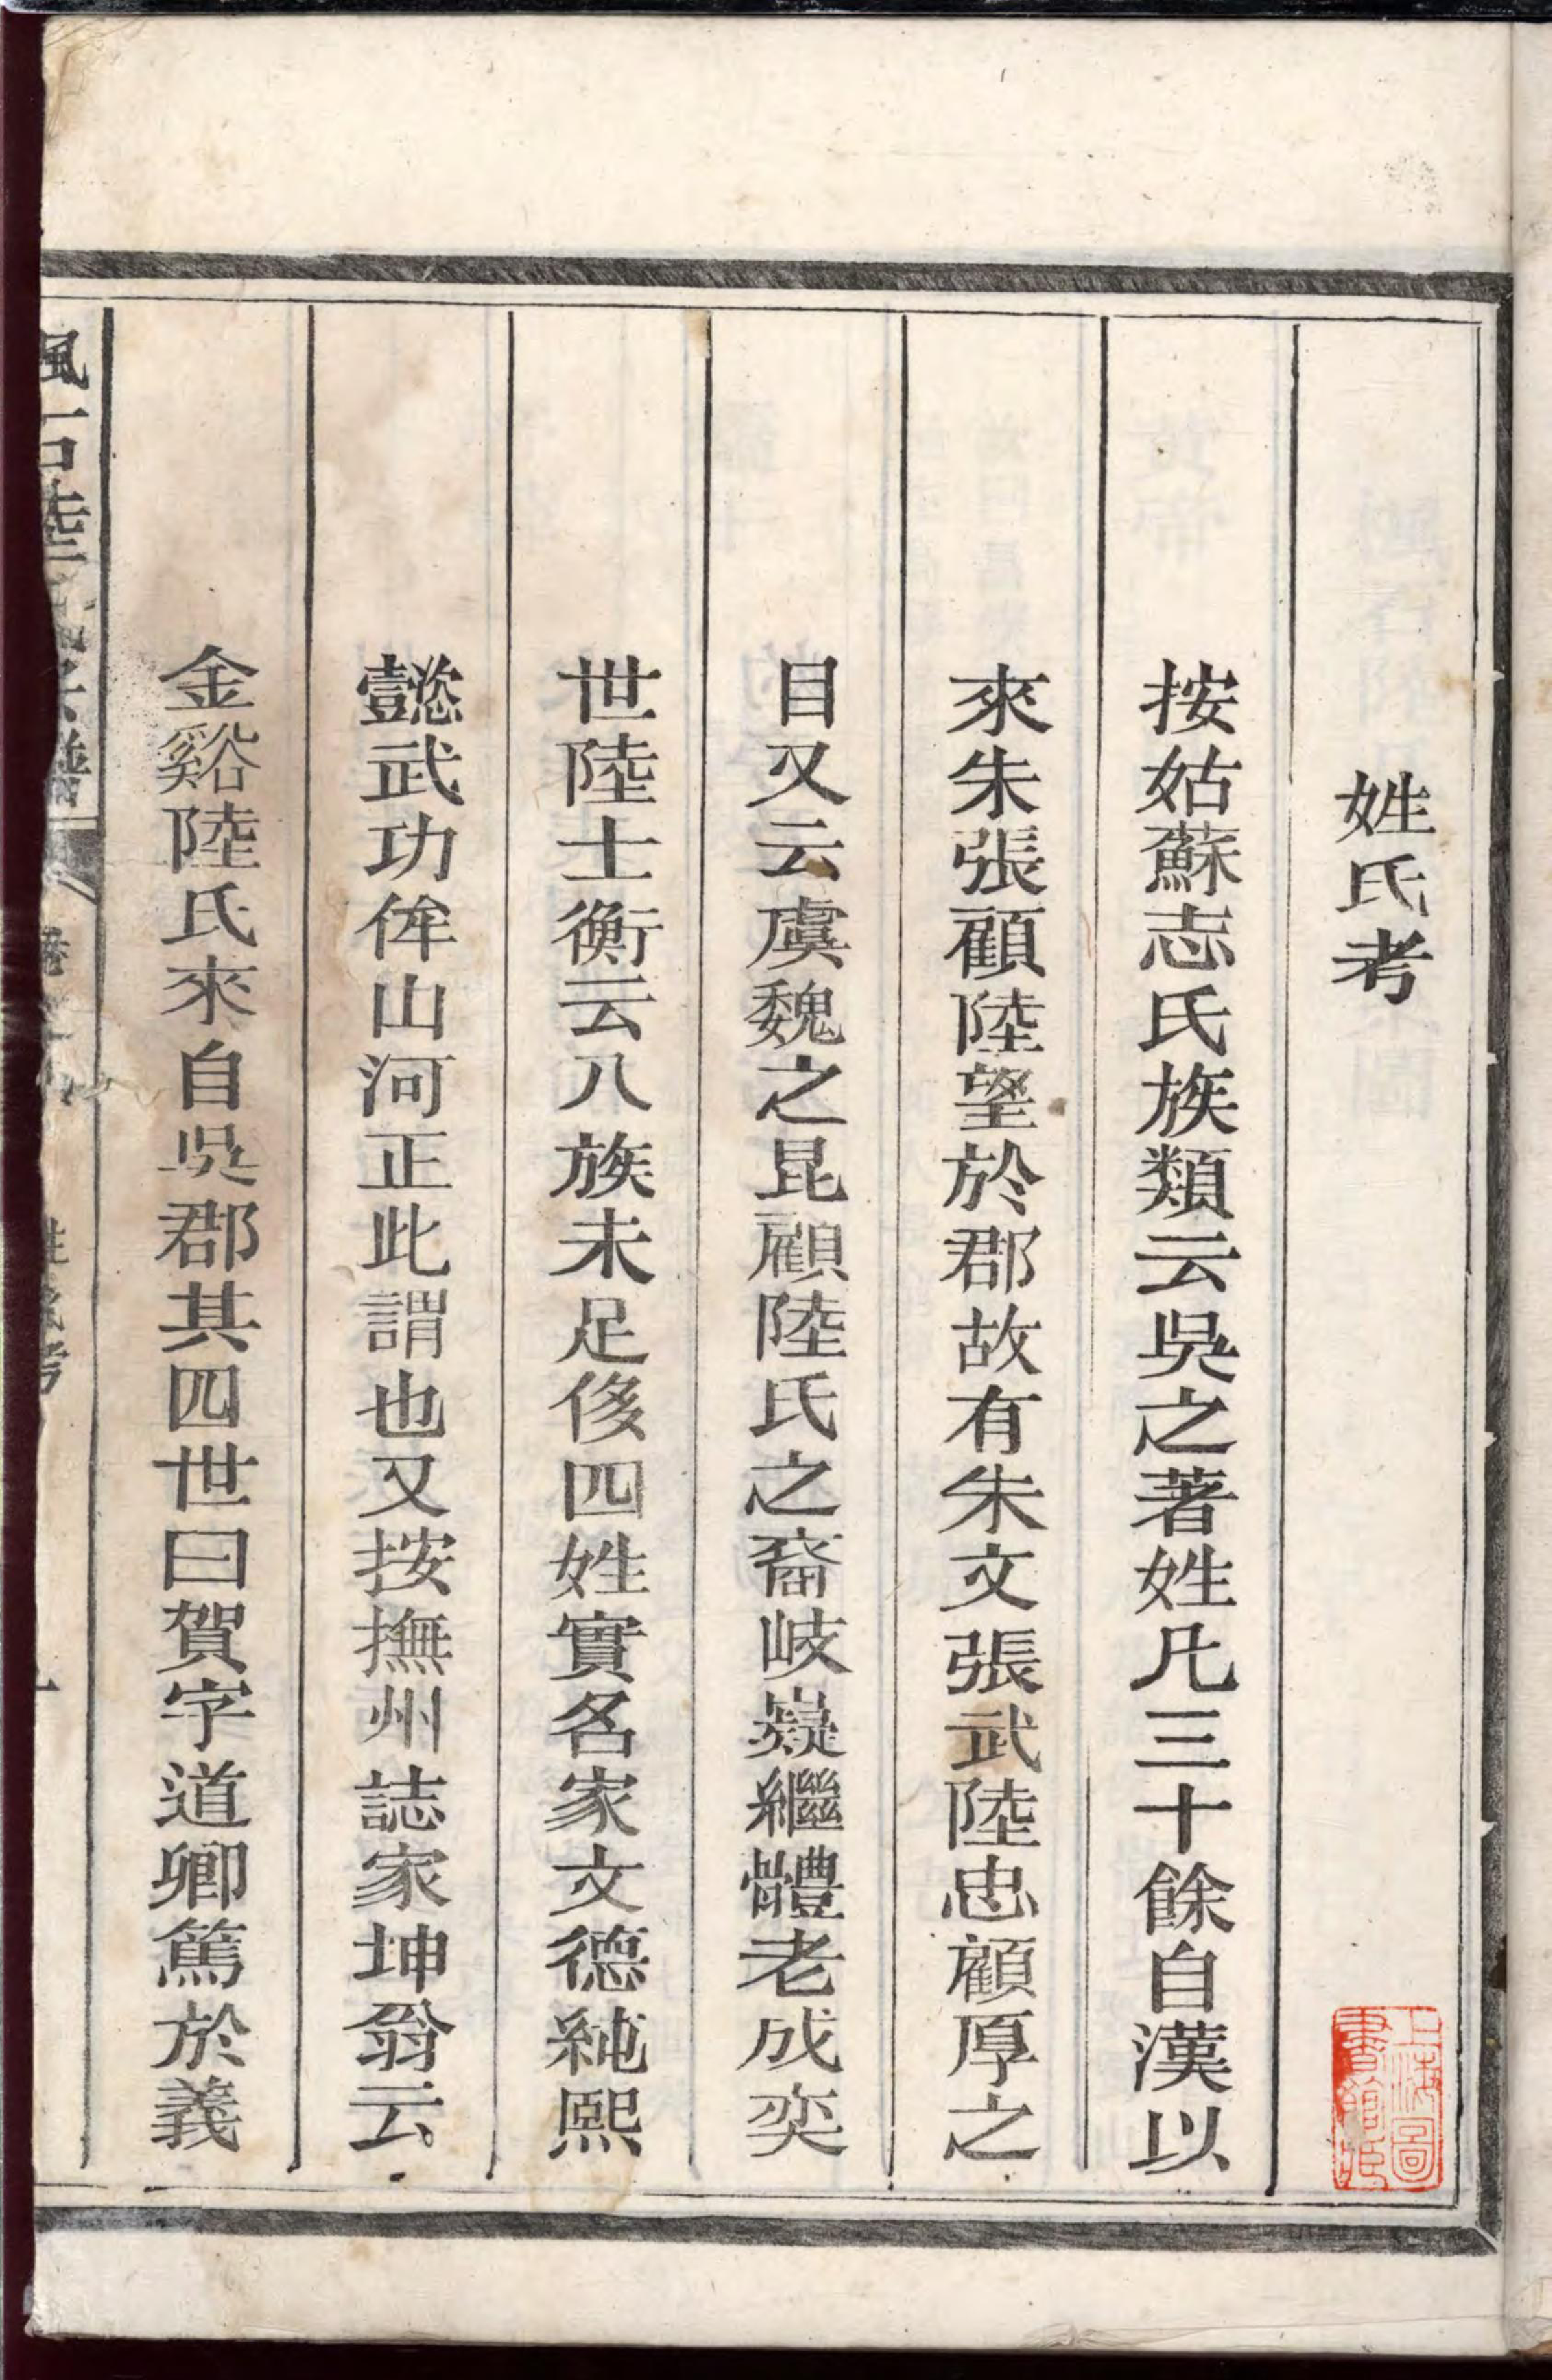 姓氏考
按姑蘇志氏族類云吳之著姓凡三十餘自漢以
來朱張顧陸望於郡故有朱文張武陸忠顧厚之
目又云虞魏之昆顧陸氏之裔岐嶷繼體老成奕
世陸士衡云八族未足侈四姓實名家文德純熙
懿武功侔山河正此謂也又按撫州誌家坤翁云
金谿陸氏來自吳郡其四世曰賀字道卿篤於義
上海圖書館藏